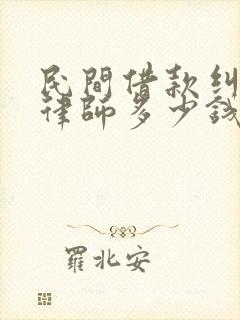 民間借款糾
律師多少錢
羅北安